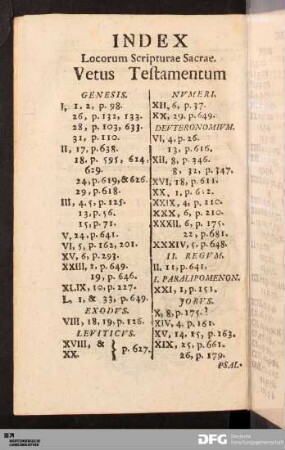 INDEX
Locorum Scripturae Sacrae.
Vetus Testamentum
GENESIS.
I, 1, 2, p. 98.
26, p. 132, 133.
28, p. 103, 633.
31, p. 110.
II, 17, p. 638.
18. p. 595, 624.
629.
24, p. 619, & 626.
29, p. 618.
III, 4, 5, p. 125.
13, p. 56.
15, p. 71.
V, 24, p. 641.
VI, 5, p. 162, 201.
XV, 6, p. 293.
XXIII, 2, p. 649.
19, p. 646.
XLIX, 10, p. 227.
L, 1, & 33, p. 649.
EXODUS.
VIII, 18, 19, p. 126.
LEVITICUS.
XVIII, & } p. 627.
XX.
NUMERI.
XII, 6, p. 37.
XX, 29, p. 649.
DEUTERONOMIUM.
VI, 4, p. 26.
13, p. 616.
XII, 8, p. 346.
8, 32, p. 347.
XVI, 18, p. 611.
XX, 1, p. 612.
XXIX, 4, p. 110.
XXX, 6, p. 210.
XXXII, 6, p. 175.
22, p. 681.
XXXIV, 5, p. 648.
II. REGUM.
II, 11, p. 641.
I. PARALIPOMENON.
XXI, 1, p. 151.
JOBUS.
X, 8, p. 175.
XIV, 4, p. 161.
XV, 14, 15, p. 163.
XIX, 25, p. 661.
26, p. 179.
PSAL.
DFG Deutsche
Forschungsgemeinschaft